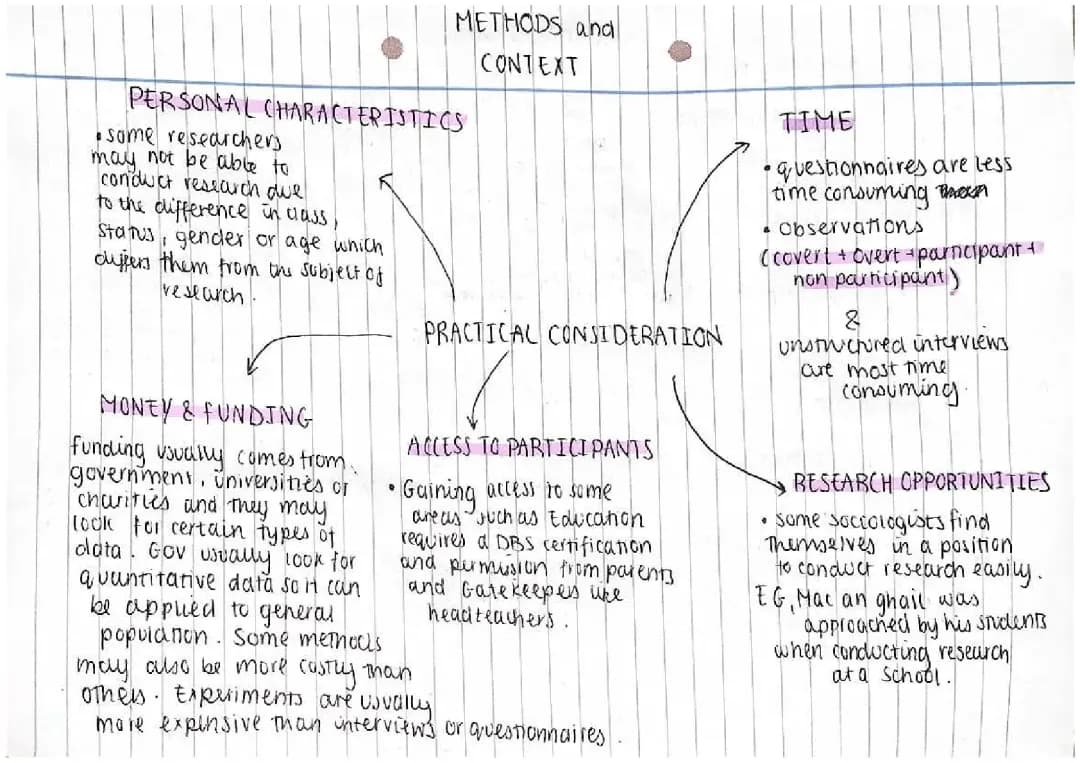 METHODS and
CONTEXT
PERSONAL CHARACTERISTICS
• some researchers
may not be able to
conduct research due
to the difference in class,
status, gender or age which
differs them from the subject of
research.
TIME
• questionnaires are less
time consuming
• observations
(covert + overt + participant +
non participant)
&
unstructured interviews
are most time
consuming.
PRACTICAL CONSIDERATION
MONEY & FUNDING
funding usually comes from
government, universities or
charities and they may
look for certain types of
data. Gov usually look for
quantitative data so it can
be applied to general
population. Some methods
may also be more costly than
others. Experiments are usually
more expensive than interviews or questionnaires.
ACCESS TO PARTICIPANTS
• Gaining access to some
areas such as Education
requires a DBS certification
and permission from parents
and Gatekeepers like
headteachers.
RESEARCH OPPORTUNITIES
• some sociologists find
themselves in a position
to conduct research easily.
EG, Mac an ghail was
approached by his students
when conducting research
at a school.